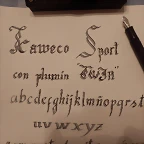 Kaweco Sport
con plumín "TWIN"
abcdefghijklmnñopqrst
uvwxyz